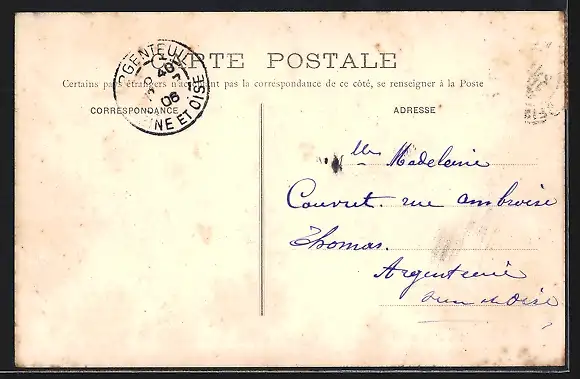 CARTE POSTALE
Certains pays étrangers n'acceptant pas la correspondance de ce côté, se renseigner à la Poste
CORRESPONDANCE
ADRESSE
ARGENTEUIL
06
SEINE ET OISE
Mlle Madeleine
Couvret. rue ambroise
Thomas.
Argenteuil
Seine et Oise